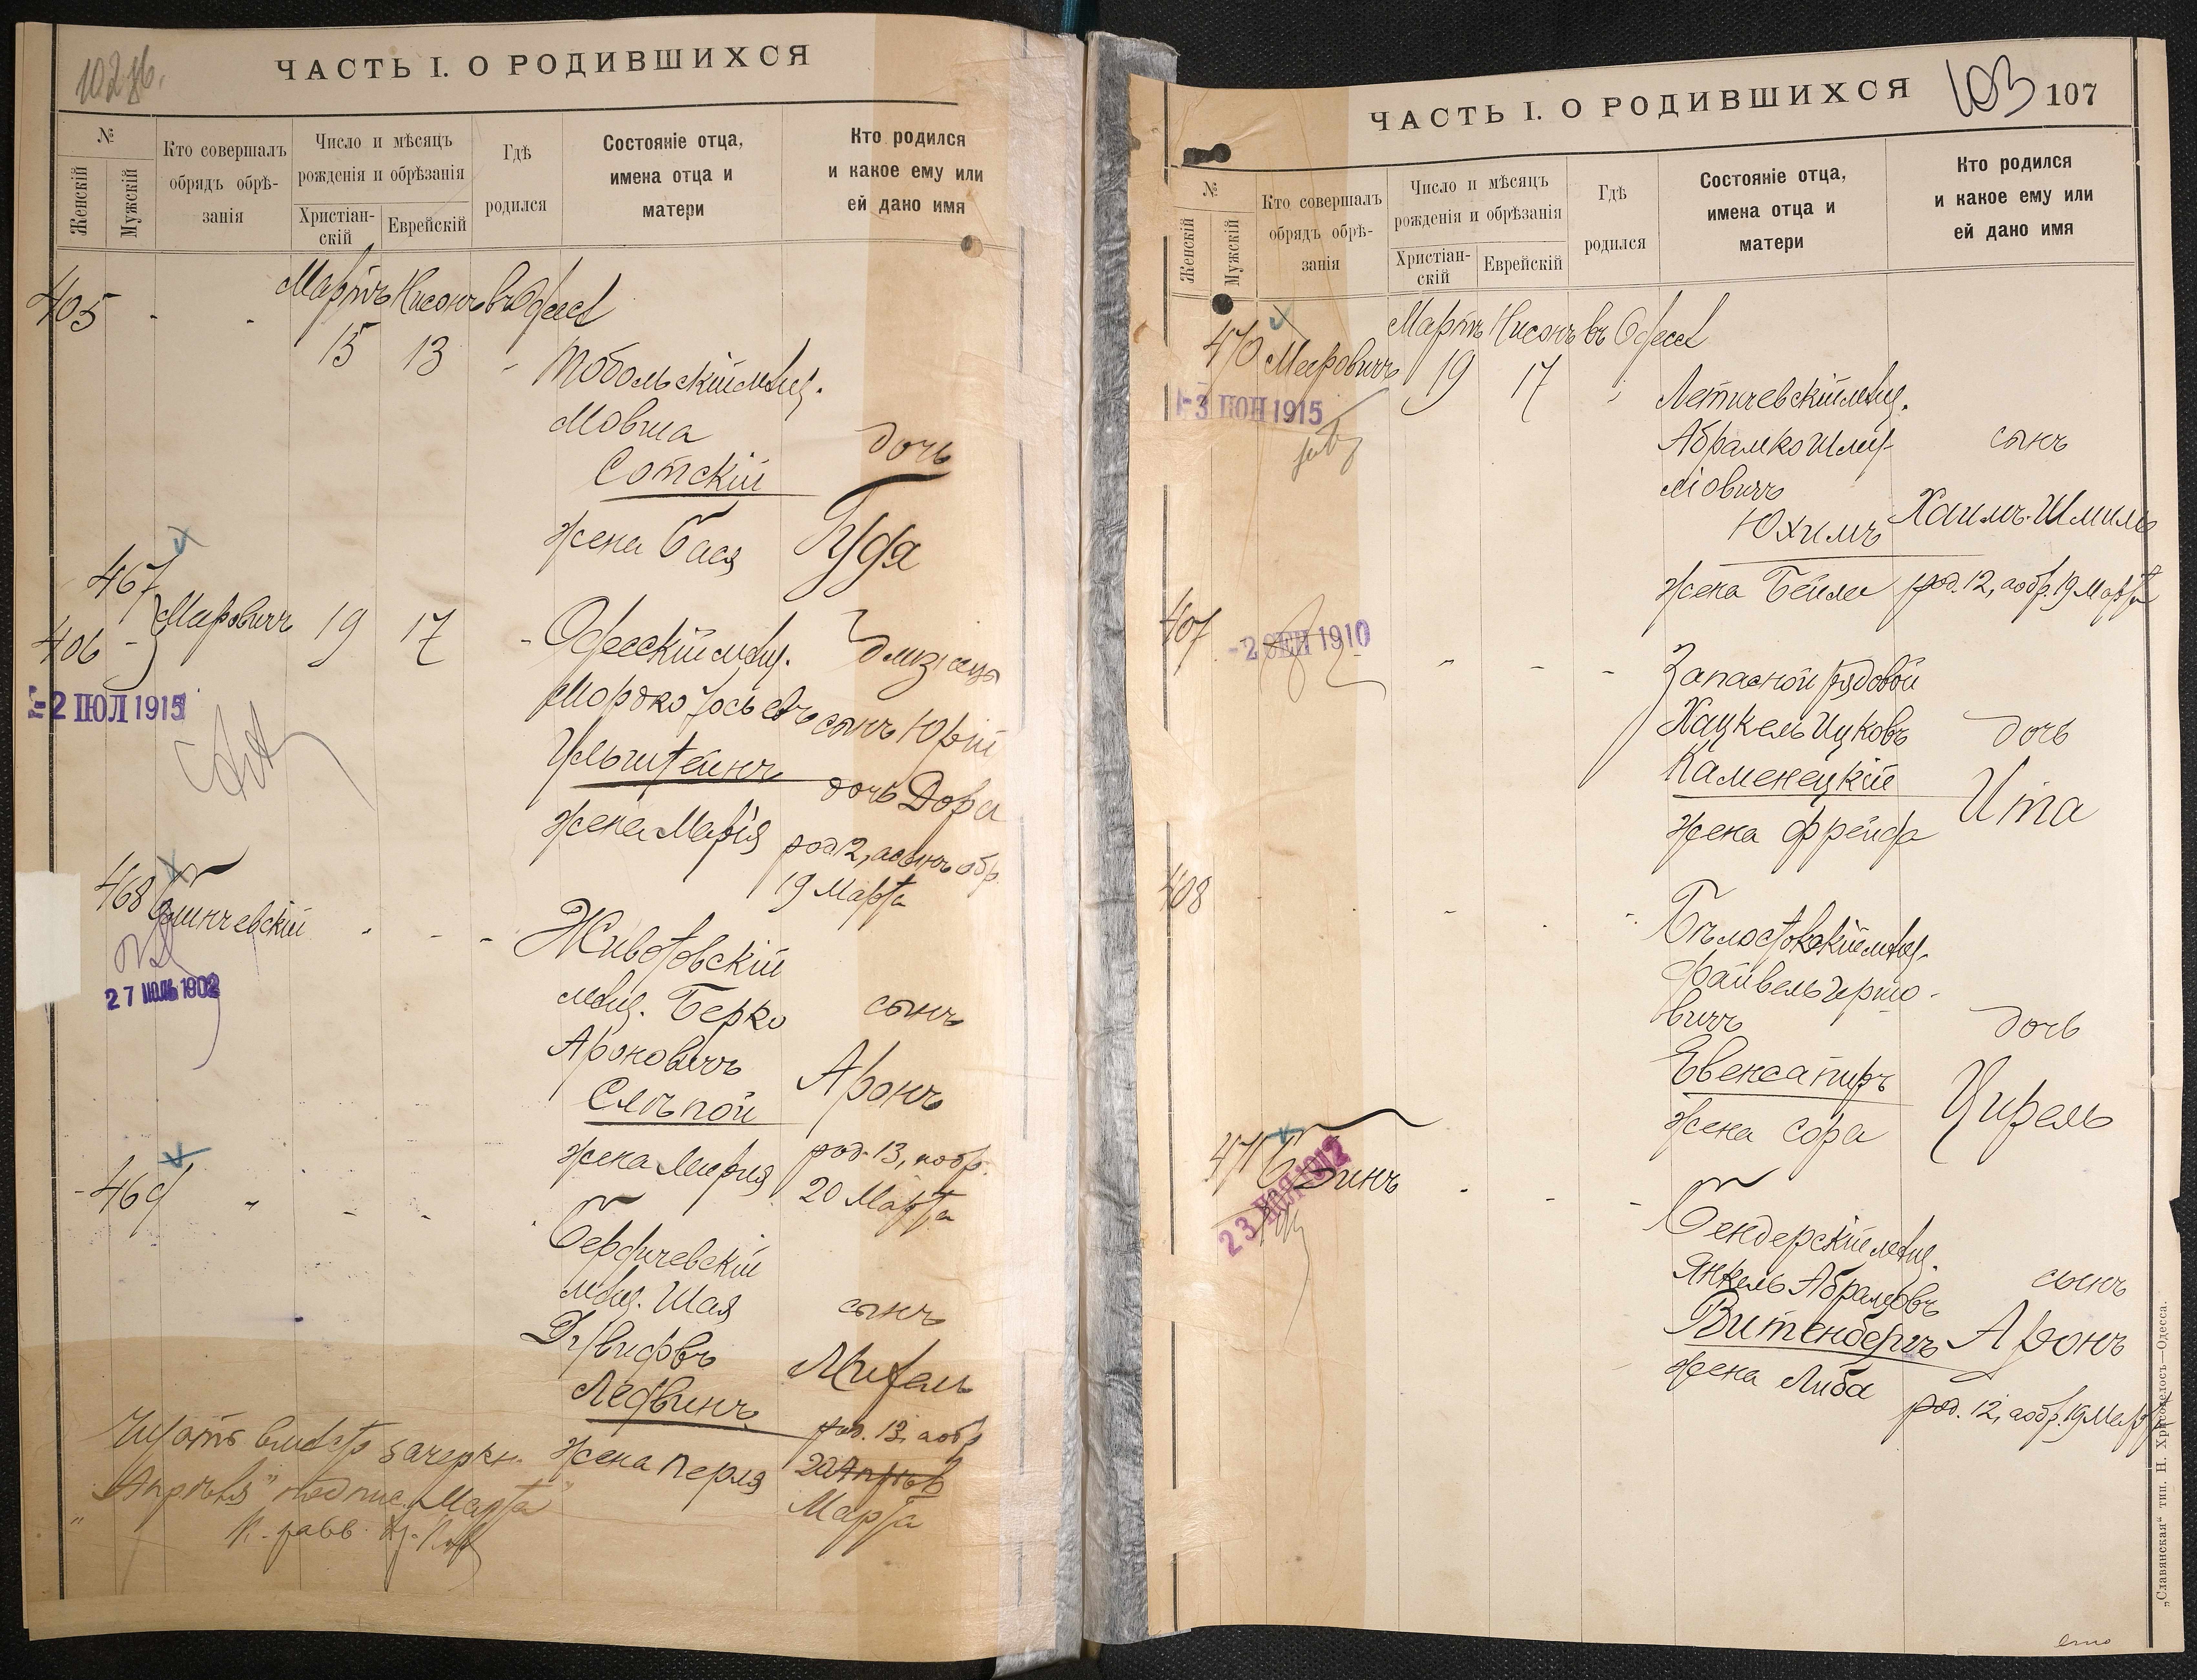 102 об.
ЧАСТЬ I. О РОДИВШИХСЯ
№
Женскій
Мужскій
Кто совершалъ
обрядъ обрѣ-
занія
Число и мѣсяцъ
рожденія и обрѣзанія
Христіан-
скій
Еврейскій
Гдѣ
родился
Состояніе отца,
имена отца и
матери
Кто родился
и какое ему или
ей дано имя
405 - - Мартъ Нисонъ въ Одессѣ
15 13 - Тобольскій мѣщ.
Мовша
Сотскій
жена Бася
дочь
Гуда
467
406 - Меировичъ 19 17 - Одесскій мѣщ.
Мордко Іосьевъ
жена Марія
близнецы
сынъ Юрій
дочь Дора
род. 12, а сынъ обр.
19 Марта
-2 ІЮЛ 1915
468 - - - Животовскій
мѣщ. Берко
Ароновичъ
Слѣпой
жена
сынъ
Аронъ
род. 13, а обр.
20 Марта
27 ІЮЛЬ 1902
469 " - - Бердичевскій
мѣщ. Шая
Ледвинъ
жена Перля
сынъ
род. 13, а обр.
20 Апрѣля
Марта
Читать вмѣсто зачеркн.
"Апрѣля" надпис. "Марта"
К. равв.
ЧАСТЬ I. О РОДИВШИХСЯ
103
107
№
Женскій
Мужскій
Кто совершалъ
обрядъ обрѣ-
занія
Число и мѣсяцъ
рожденія и обрѣзанія
Христіан-
скій
Еврейскій
Гдѣ
родился
Состояніе отца,
имена отца и
матери
Кто родился
и какое ему или
ей дано имя
Мартъ Нисонъ въ Одессѣ
470 Меировичъ 19 17 Летичевскій мѣщ.
Абрамко Шму-
ліовичъ
Юхимъ
жена Бейла
сынъ
Хаимъ-Шмиль
род. 12, а обр. 19 Марта
-3 ІЮН 1915
407 " - - Запасной рядовой
Хацкель Ицковъ
Каменецкій
жена Фрейда
дочь
Ита
-2 СЕН 1910
408 - - - Бѣлостокскій мѣщ.
Файвель Гершо-
вичъ
Евенсапиръ
жена Сора
дочь
Цирель
471 - - - Бендерскій мѣщ.
Янкель Абрамовъ
Витенбергъ
жена Либа
сынъ
Аронъ
род. 12, а обр. 19 Марта
23 МАЯ 1912
„Славянская“ тип. Н. Хрисогелосъ—Одесса.